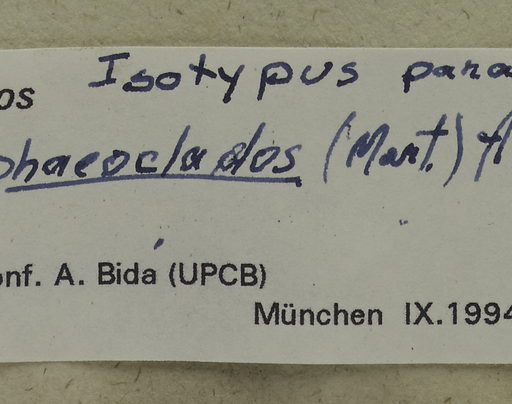 Isotypus para
os
phaeoclados (Mart.)
onf. A. Bida (UPCB)
München IX.1994